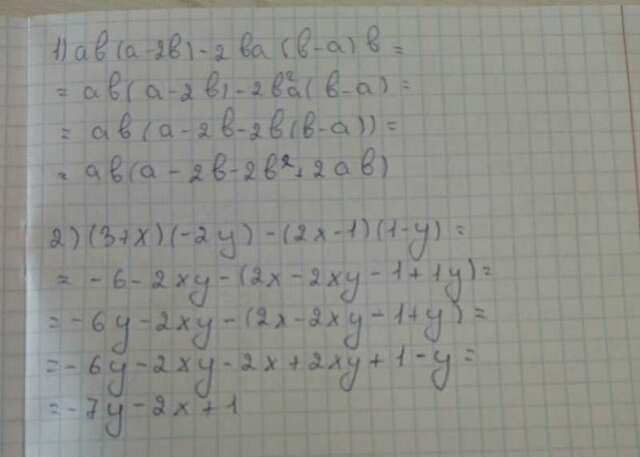 1) ab(a-2b)-2ba(b-a)b=
= ab(a-2b)-2b²a(b-a)=
= ab(a-2b-2b(b-a))=
= ab(a-2b-2b²+2ab)
2)(3+x)(-2y)-(2x-1)(1-y)=
= -6-2xy-(2x-2xy-1+1y)=
= -6y-2xy-(2x-2xy-1+y)=
= -6y-2xy-2x+2xy+1-y=
= -7y-2x+1